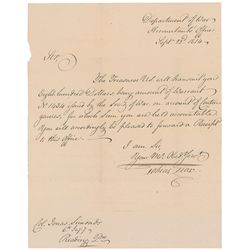 Department of War
Accountants Office
Sept. 1814
Sir,
The Treasurer U.S. will transmit you
Eight hundred Dollars, being amount of Warrant
No 1434 issued by the Secty of War, on account of Contin-
gencies, for which you are held accountable
You will accordingly be pleased to forward a Receipt
to this Office.
I am Sir,
Your Mo. Obt Servt
Col. Jonas Simonds
6th Inf
Reading Pa